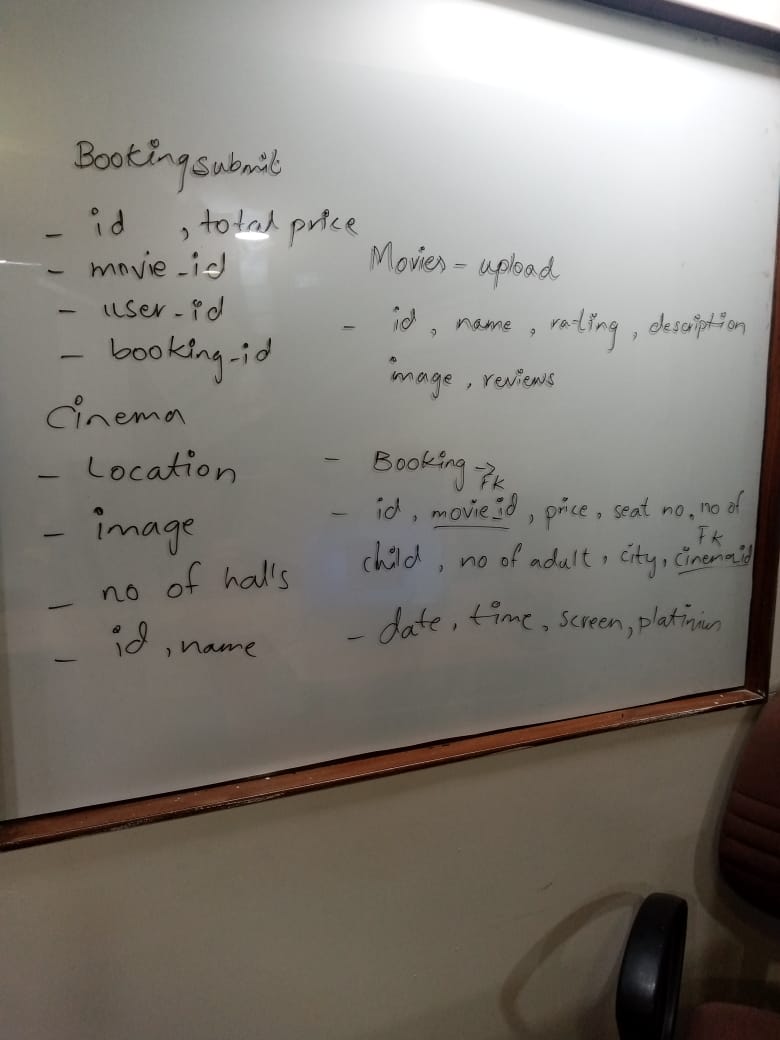 Bookingsubmit
- id , total price
- movie_id
- user-id
- booking-id
Cinema
- Location
- image
- no of halls
- id , name
Movies - upload
- id , name , rating , description
image , reviews
- Booking → FK
- id , movie_id , price , seat no , no of
FK
child , no of adult , city , cinemaid
- date , time , screen , platinium